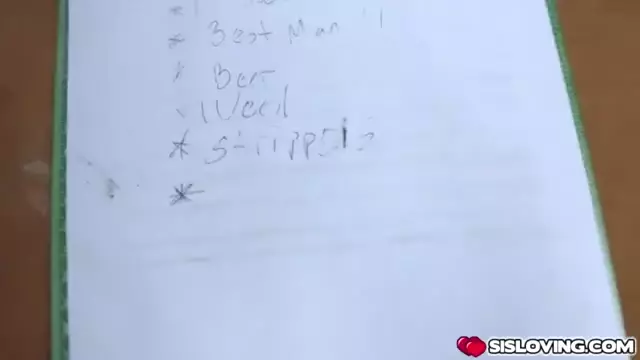 * Best Man
* Beer
Weed
* Strippers
*
SISLOVING.COM